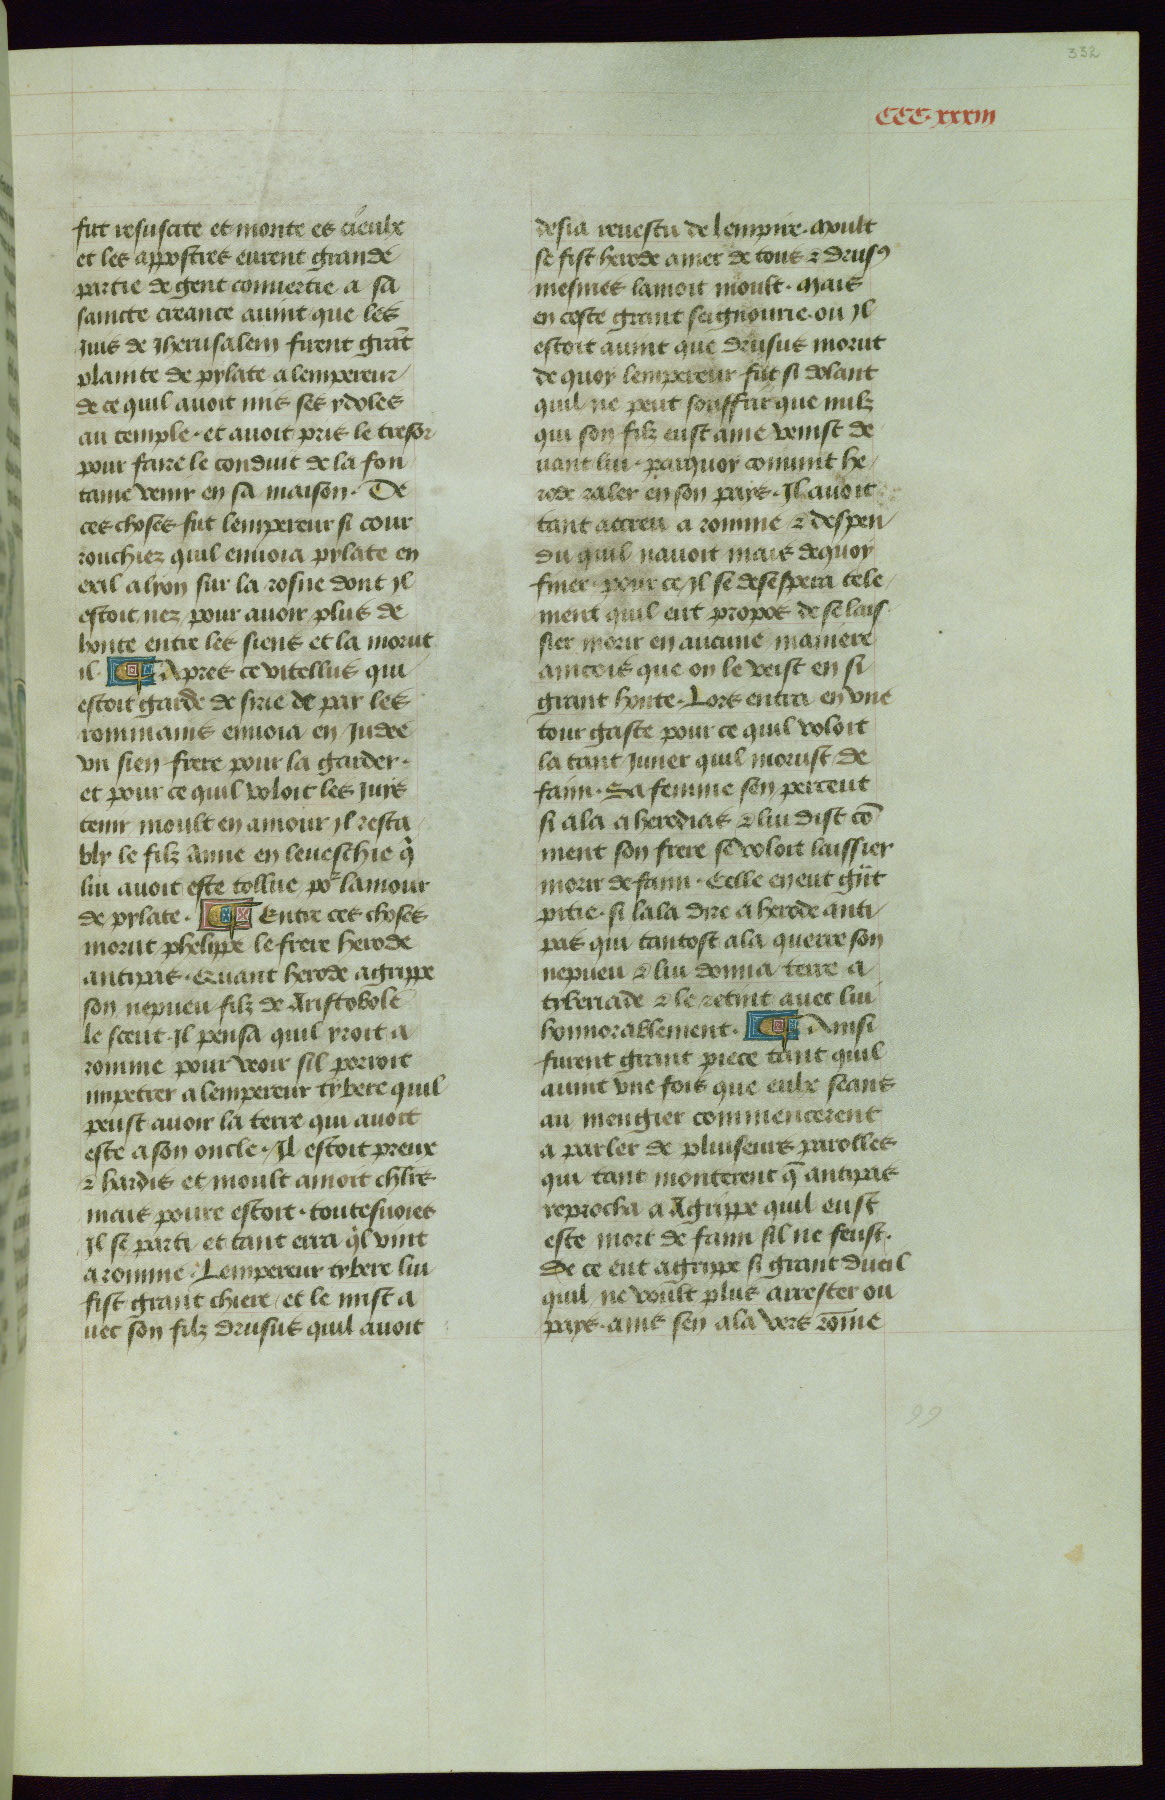 332
CCC xxxiii
fut resuscite et monte es cieulx
et les appostres eurent grande
partie de gent conuertie a sa
saincte creance auint que les
Juis de Jherusalem firent grāt
plainte de pylate a lempereur
de ce quil auoit mis ses ydoles
au temple · et auoit pris le tresor
pour faire le conduit de la fon
taine venir en sa maison · De
ces choses fut lempereur si cour
rouchiez quil enuoia pylate en
exil a lyon sur la rosne dont Jl
estoit nez pour auoir plus de
honte entre les siens et la morut
il · Apres ce vitellus qui
estoit garde de sirie de par les
rommains enuoia en Judee
vn sien frere pour la garder ·
et pour ce quil voloit les Juis
tenir moult en amour Jl resta
bly le filz anne en leueschie q̄
lui auoit este tollue por lamour
de pylate · Entre ces choses
morut phelippe le frere herode
antipas · Quant herode agrippe
son nepueu filz de Aristobole
le sceut · Jl pensa quil yroit a
romme pour veoir sil porroit
impetrer a lempereur tybere quil
peust auoir la terre qui auoit
este a son oncle · Jl estoit preux
⁊ hardis et moult amoit chl̄rs
mais poure estoit · toutesuoies
Jl se parti et tant erra q̄l vint
a romme · Lempereur tybere lui
fist grant chiere / et le mist a
uec son filz drusus quil auoit
desia reuestu de lempire · moult
se fist herode amer de tous ⁊ drusꝰ
mesmes lamoit moult · Mais
en ceste grant seignourie ou Jl
estoit auint que drusus morut
de quoy lempereur fut si dolant
quil ne peut souffrir que nulz
qui son filz eust ame venist de
uant lui · parquoy conuint he
rode raler en son pays · Jl auoit
tant accreu a romme ⁊ despen
du quil nauoit mais dequoy
finer · pour ce Jl se desespera tele
ment quil eut propos de se lais
sier morir en aucune maniere
aincois que on le veist en si
grant honte · Lors entra en vne
tour gaste pour ce quil voloit
la tant Juner quil morust de
faim · Sa femme sen perceut
si ala a herodias ⁊ lui dist cō
ment son frere se voloit laissier
morir de faim · Celle en eut gn̄t
pitie · si lala dire a herode anti
pas qui tantost ala querre son
nepueu ⁊ lui donna terre a
tyberiade ⁊ le retint auec lui
honnorablement · Ainsi
furent grant piece tant quil
auint vne fois que eulx seans
au mengier commencerent
a parler de pluiseurs parolles
qui tant monterent q̄ antipas
reprocha a Agrippe quil eust
este mort de faim sil ne feust ·
De ce eut agrippe si grant dueil
quil ne voult plus arrester ou
pays · ains sen ala vers rōme
99